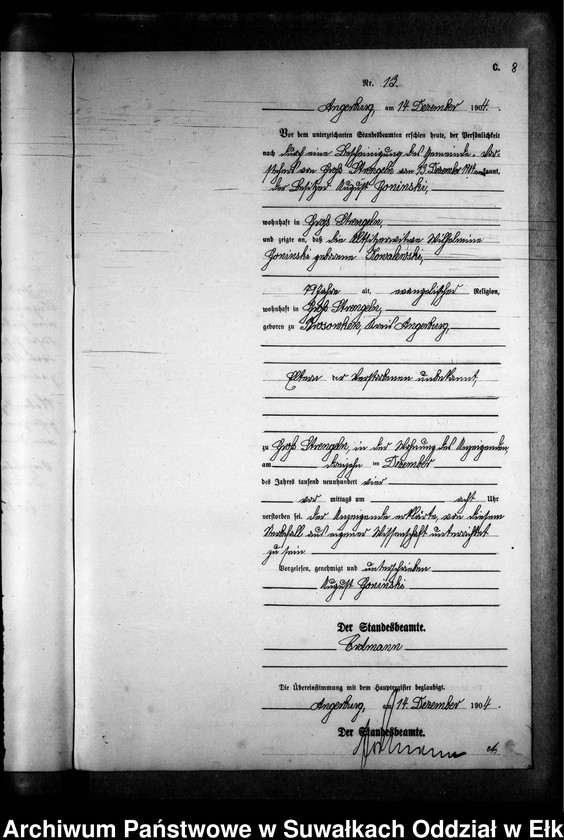 C. 8
Nr. 13.
Angerburg, am 14 Dezember 1904.
Vor dem unterzeichneten Standesbeamten erschien heute, der Persönlichkeit
nach durch eine Bescheinigung des Gemeinde-Vor-
stehers von Groß Strengeln vom 13 Dezember 1904 erkannt,
der Besitzer August Goninski,
wohnhaft in Groß Strengeln,
und zeigte an, daß die Altsitzerwitwe Wilhelmine
Goninski geborene Kowalewski,
79 Jahre alt, evangelischer Religion,
wohnhaft in Groß Strengeln,
geboren zu Brosowken, Kreis Angerburg,
Eltern der Verstorbenen unbekannt,
zu Groß Strengeln, in der Wohnung des Anzeigenden,
am dreizehn ten Dezember
des Jahres tausend neunhundert vier
vor mittags um acht Uhr
verstorben sei. Der Anzeigende erklärte, von diesem
Sterbefall aus eigener Wissenschaft unterrichtet
zu sein
Vorgelesen, genehmigt und unterschrieben
August Goninski
Der Standesbeamte.
Erdmann
Die Übereinstimmung mit dem Hauptregister beglaubigt.
Angerburg, am 14 Dezember 1904.
Der Standesbeamte.
Erdmann
Archiwum Państwowe w Suwałkach Oddział w Ełk